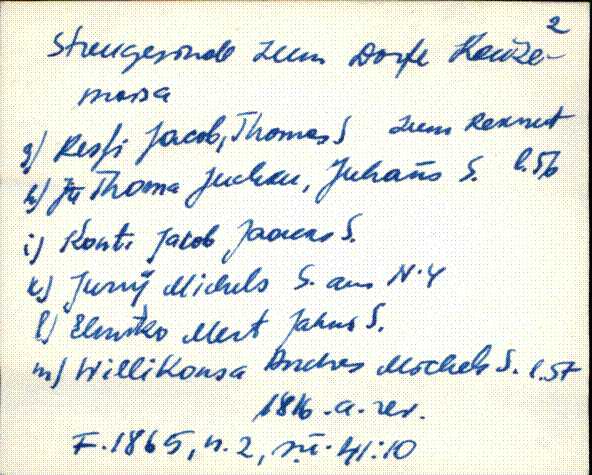 2
Streugesinde zum Dorfe Kause-
moisa
g) Resfi Jacob, Thomas S zum Rekrut
h) Jü Thoma Juhku, Juhans S. l.56
i) Konti Jacob Jaacks S.
k) Jurry Michels S. aus N.4
l) Mert Jahns S.
m) Willikonsa Andres Michels S. l.57
1816.a.rev.
F.1865, n.2, sü.41:10